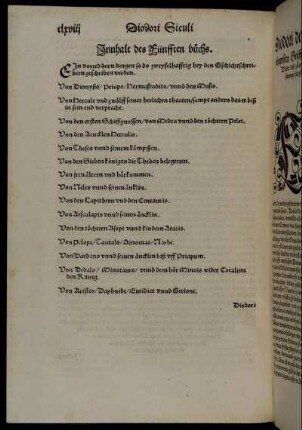 clxviij Diodori Siculi
Innhalt des Fünfften bůchs.
Ein vorred vorn dengen so do zweyfelhafftig bey den Gschichtschrei-
bern geschriben werden.
Von Dionysio/ Priapo/ Hermafrodito/ vnnd den Musis.
Von Hercule vnd zwölff seiner herlichen thaaten/ sampt andern das er biß
in sein end verpracht.
Von den ersten Schiffgnossen/ von Medea vnnd den töchtern Pelei.
Von den Äncklen Herculis.
Von Theseo vnnd seinem kämpffen.
Von den Siben künigen die Theben belegerten.
Von jren ältern vnd härkommen.
Von Neleo vnnd seinen äncklin.
Von den Lapithern vnd den Centauris.
Von Aesculapio vnd seinen äncklin.
Von den töchtern Asopi vnnd kindern Aeacis.
Von Pelope/ Tantalo/ Oenomao/ Niobe.
Von Dardano vnnd seinen äncklin biß vff Priamum.
Von Dedalo/ Minotauro/ vnnd dem hör Minois wider Cocalum
den Künig.
Von Aristeo/ Daphnide/ Euridice vnnd Orione.
Diodori